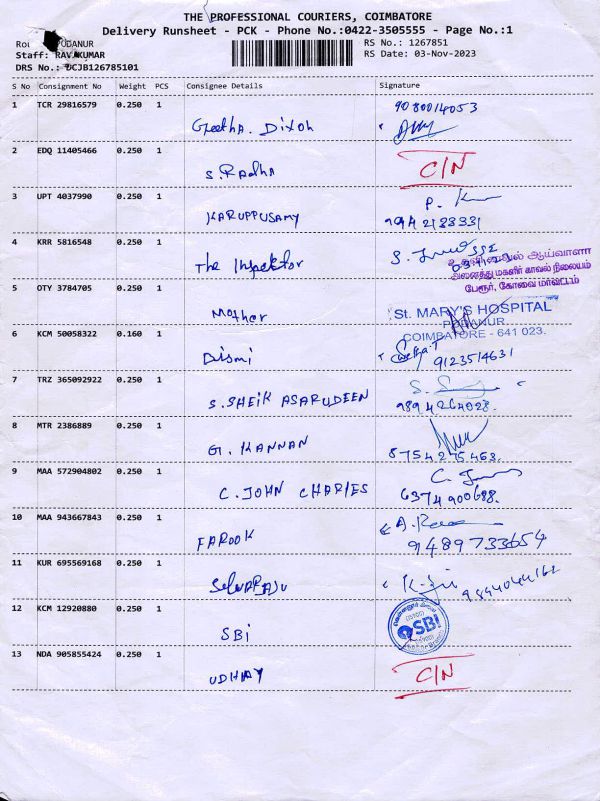 THE PROFESSIONAL COURIERS, COIMBATORE
Delivery Runsheet - PCK - Phone No.:0422-3505555 - Page No.:1
RS No.: 1267851
Staff: RAVIKUMAR RS Date: 03-Nov-2023
DRS No.: DCJB126785101
S No Consignment No Weight PCS Consignee Details Signature
1 TCR 29816579 0.250 1 9080014053
Geetha. Dixon
2 EDQ 11405466 0.250 1 C/N
S. Radha
3 UPT 4037990 0.250 1 P. K
KARUPPUSAMY
4 KRR 5816548 0.250 1 S. SSE
The Inspektor ஆய்வாளர்
அனைத்து மகளிர் காவல் நிலையம்
பேரூர், கோவை மாவட்டம்
5 OTY 3784705 0.250 1
Mother St. MARY'S HOSPITAL
COIMBATORE - 641 023.
6 KCM 50058322 0.160 1
Dismi 9123514631
7 TRZ 365092922 0.250 1 S.
S. SHEIK ASARUDEEN 9894264028.
8 MTR 2386889 0.250 1
G. KANNAN 8754275463.
9 MAA 572904802 0.250 1 C.
C. JOHN CHARIES 6374900688.
10 MAA 943667843 0.250 1 A.
FAROOK 9489733654
11 KUR 695569168 0.250 1 K.
SelvaRAJU
12 KCM 12920880 0.250 1 SBI
SBi
13 NDA 905855424 0.250 1 C/N
UDHAY